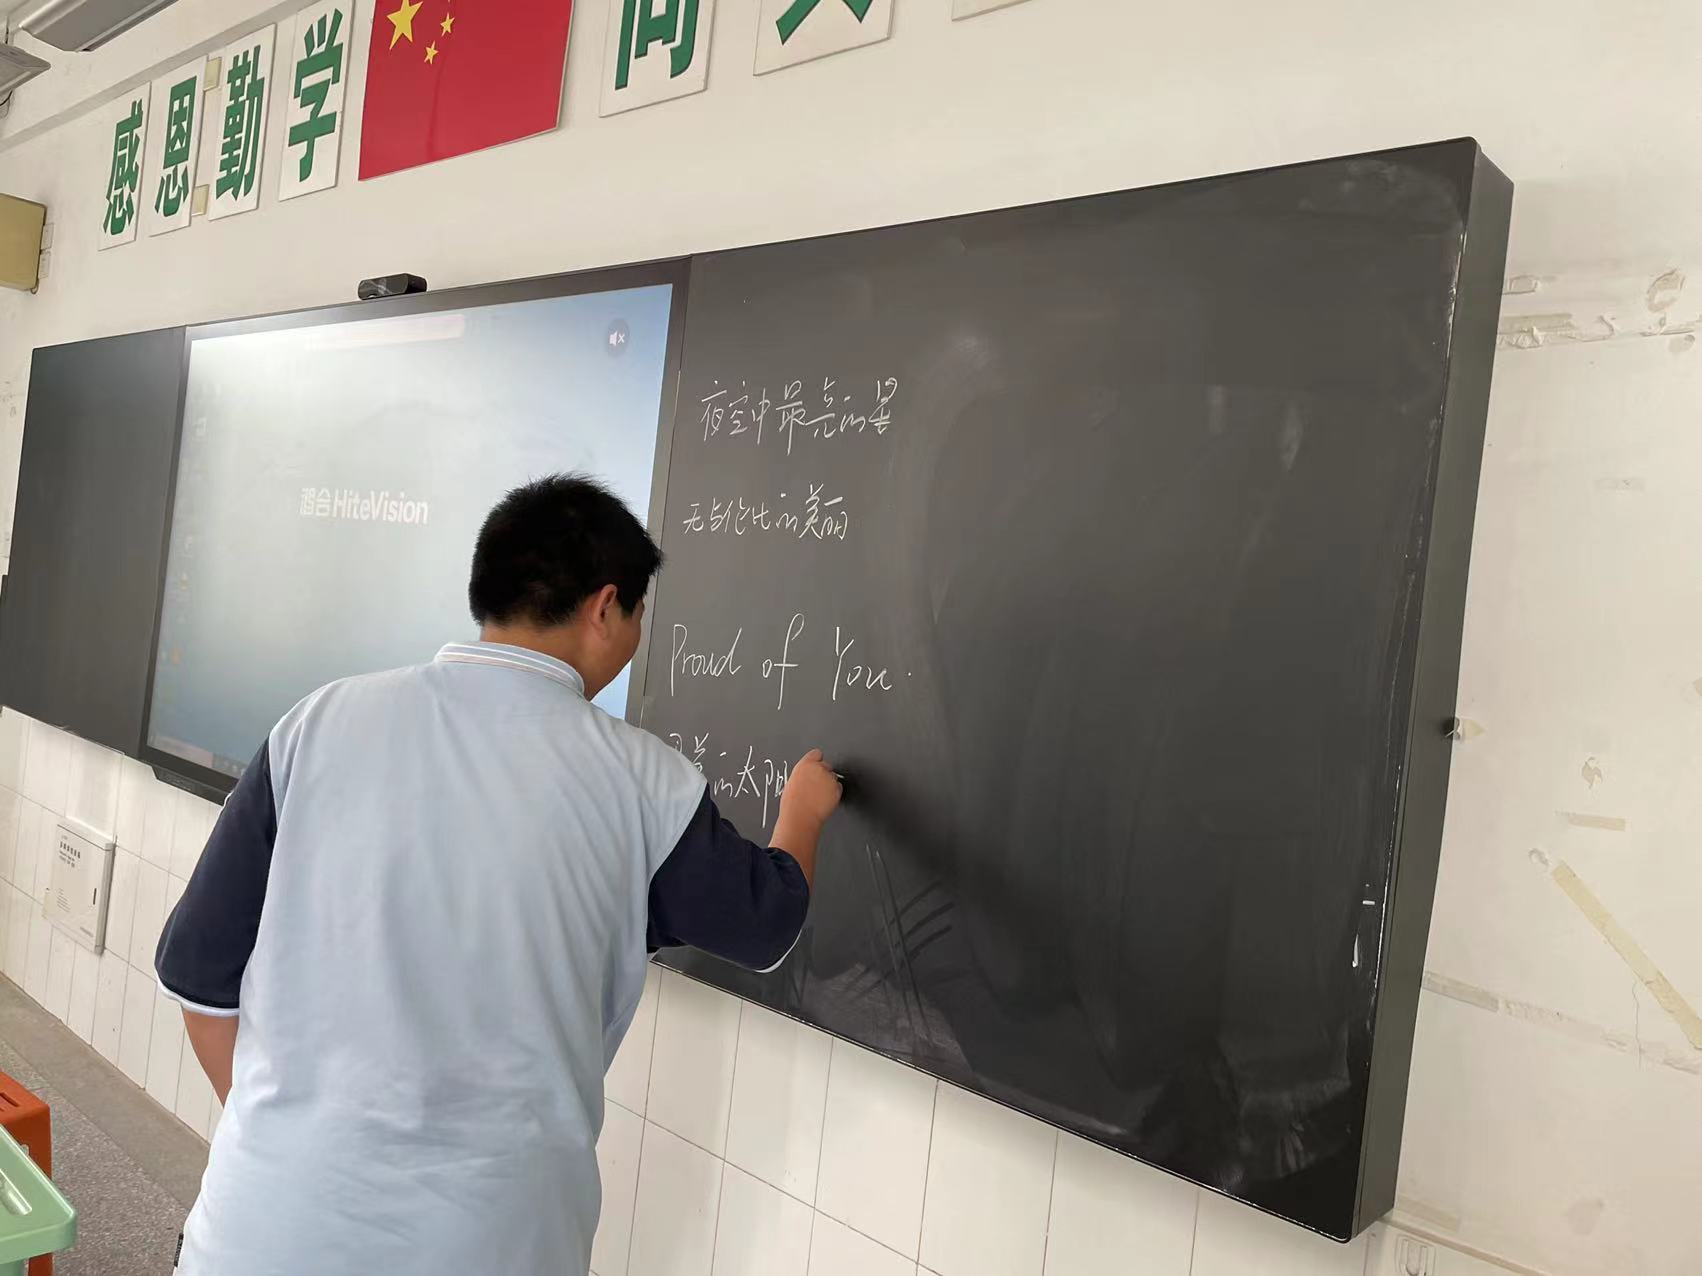 感恩勤学 向
鸿合HiteVision
夜空中最亮的星
无与伦比的美丽
Proud of You.
的太阳